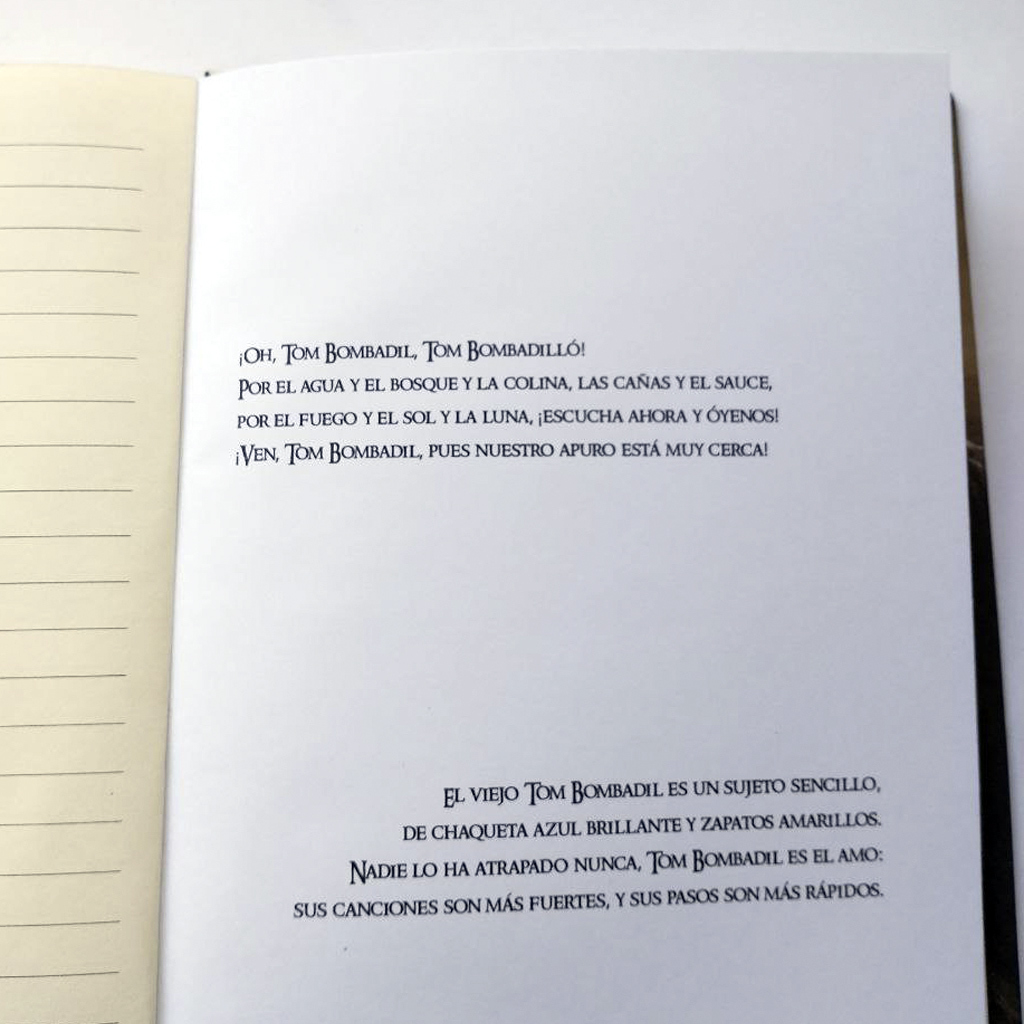 ¡Oh, Tom Bombadil, Tom Bombadilló!
Por el agua y el bosque y la colina, las cañas y el sauce,
por el fuego y el sol y la luna, ¡escucha ahora y óyenos!
¡Ven, Tom Bombadil, pues nuestro apuro está muy cerca!
El viejo Tom Bombadil es un sujeto sencillo,
de chaqueta azul brillante y zapatos amarillos.
Nadie lo ha atrapado nunca, Tom Bombadil es el amo:
sus canciones son más fuertes, y sus pasos son más rápidos.